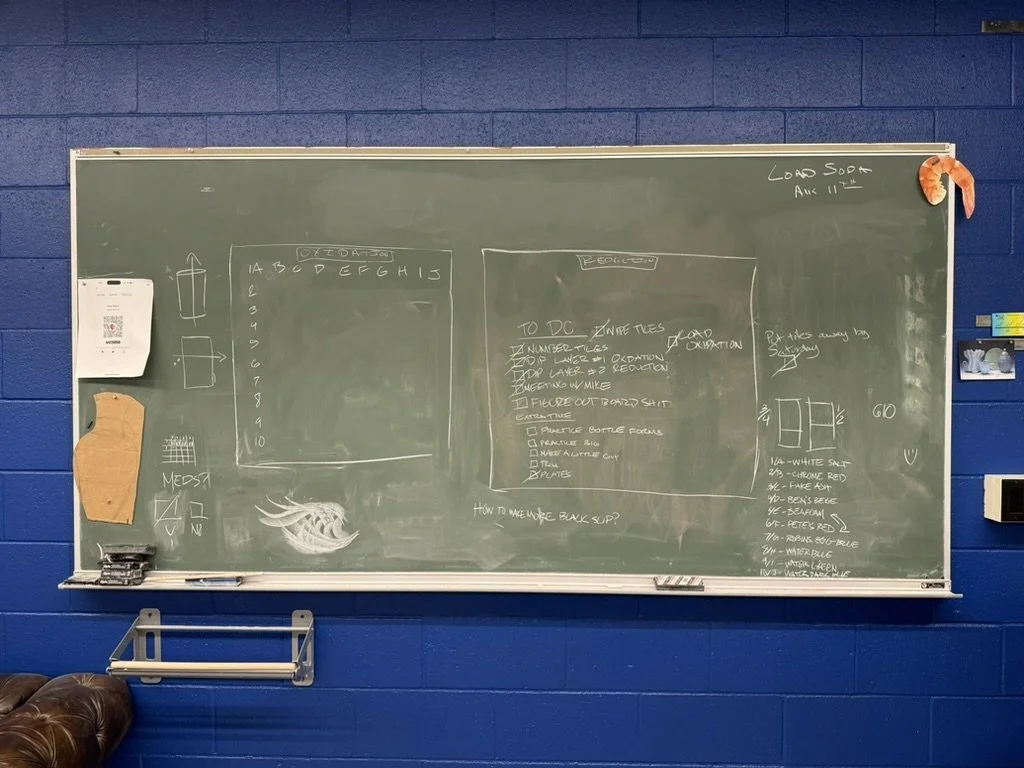 LOAD SODA
AUG 11TH
OXIDATION
1A B C D E F G H I J
2
3
4
5
6
7
8
9
10
MEDS?
Y N
REDUCTION
TO DO
WIPE TILES
NUMBER TILES
LOAD OXIDATION
DIP LAYER #1 OXIDATION
DIP LAYER #2 REDUCTION
MEETING W/ MIKE
FIGURE OUT BOARD SHIT
EXTRA TIME
PRACTICE BOTTLE FORMS
PRACTICE BIG
MAKE A LITTLE GUY
TRIM
PLATES
HOW TO MAKE MORE BLACK SLIP?
Put tiles away by
Saturday
3/4
1/2
G10
1/A - WHITE SALT
2/B - CHROME RED
3/C - FAKE ASH
4/D - BEN'S BEIGE
5/E - SEAFOAM
6/F - PETE'S RED
7/G - ROBINS EGG BLUE
8/H - WATER BLUE
9/I - WATER GREEN
10/J - WATER DARK BLUE